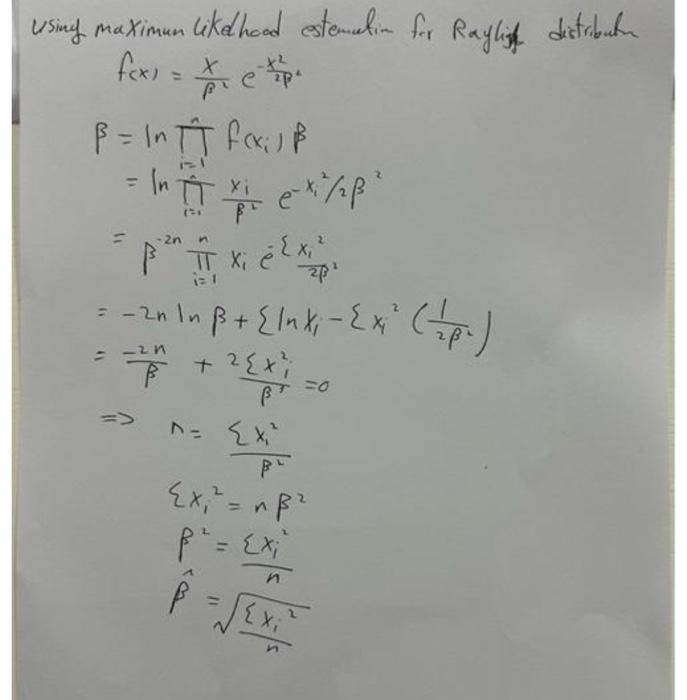 Using maximun likelhood estemation for Rayligh distributn
f(x) = x/β² e^(-x²/2β²)
β = ln ∏_{i=1}^{n} f(x_i) β
= ln ∏_{i=1}^{n} x_i/β² e^(-x_i²/2β²)
= β^(-2n) ∏_{i=1}^{n} x_i e^(-Σx_i²/2β²)
= -2n ln β + Σ ln x_i - Σ x_i² (1/2β²)
= -2n/β + 2Σx_i²/β³ = 0
=> n = Σx_i²/β²
Σx_i² = nβ²
β² = Σx_i²/n
β̂ = √(Σx_i²/n)